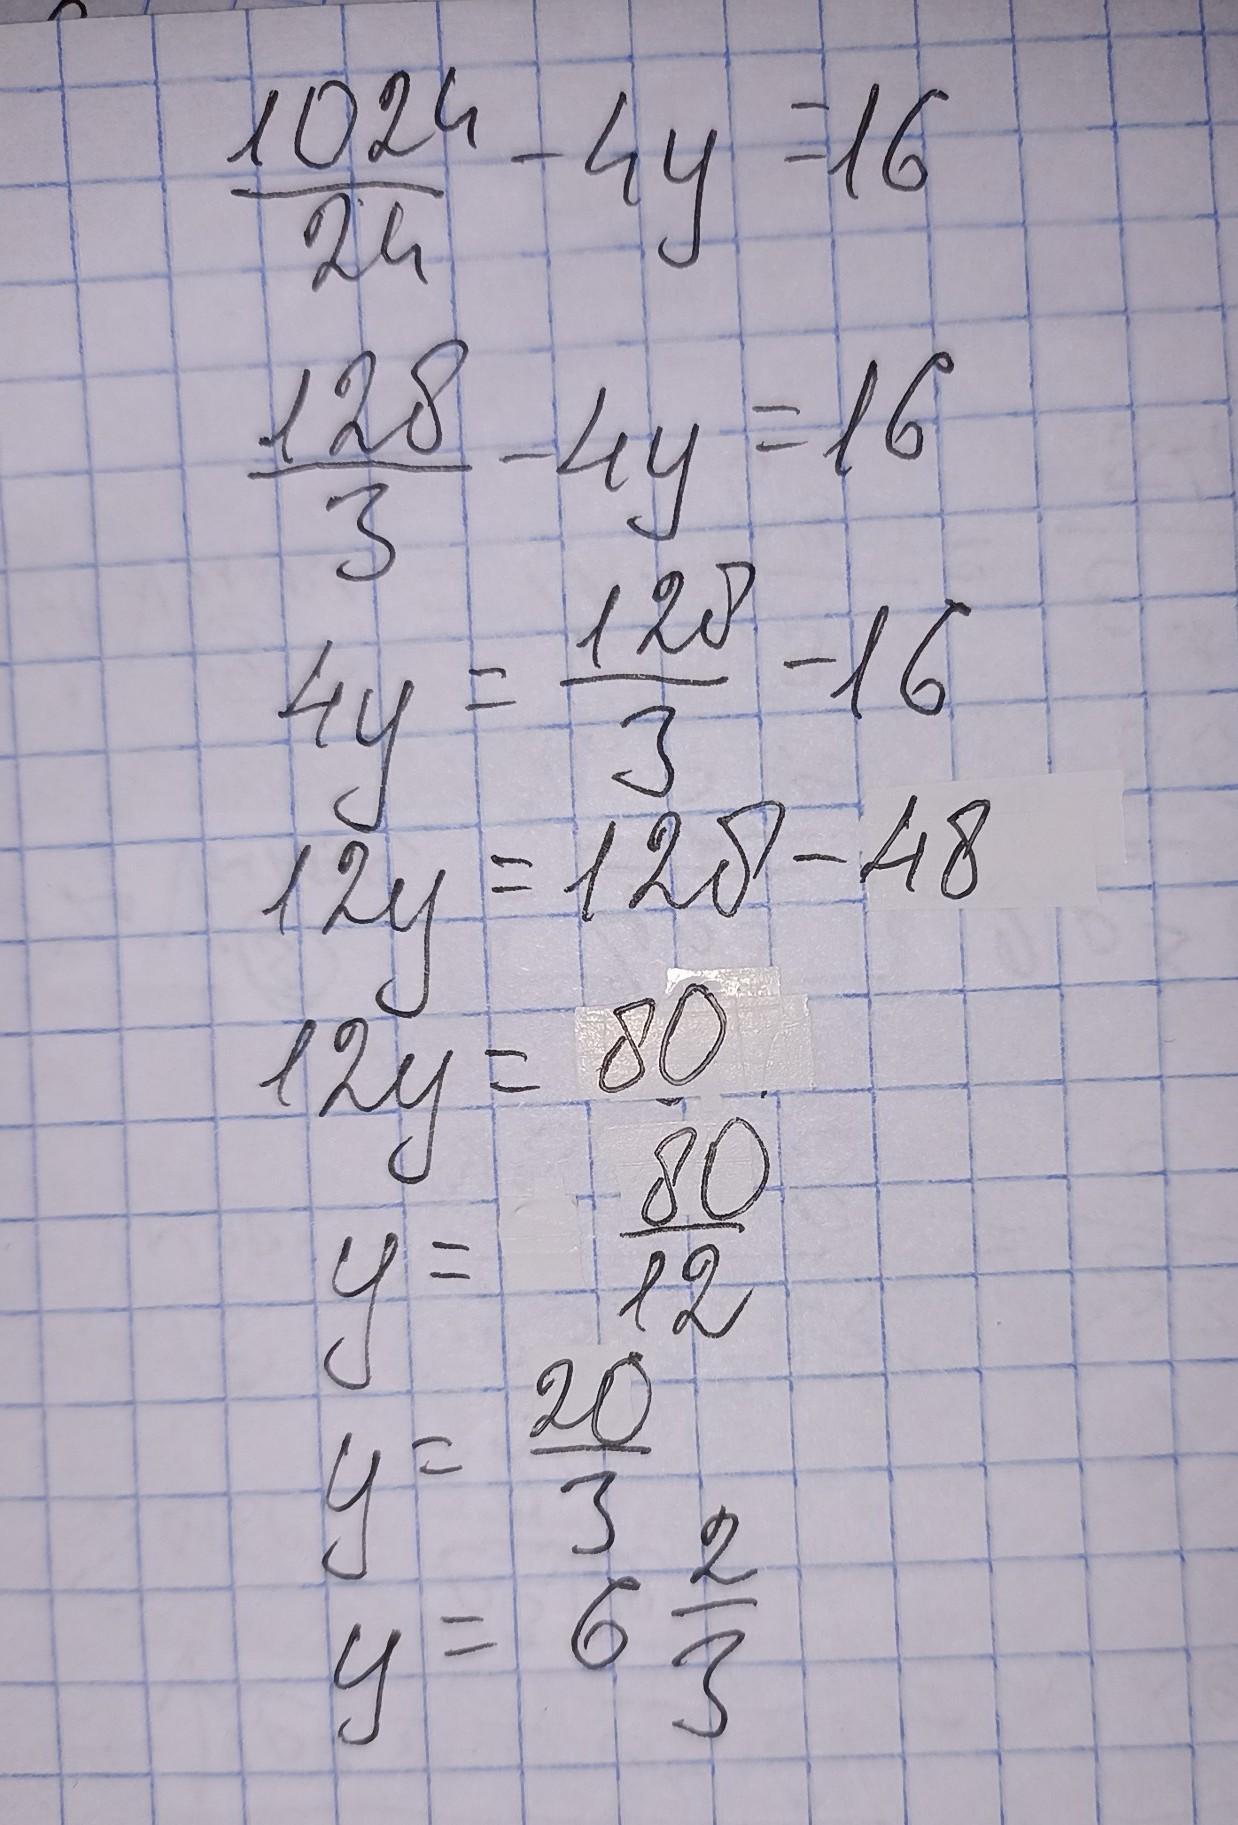 1024/24 - 4y = 16
128/3 - 4y = 16
4y = 128/3 - 16
12y = 128 - 48
12y = 80
y = 80/12
y = 20/3
y = 6 2/3